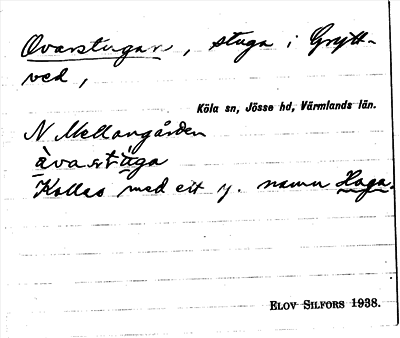 Ovarstugan, stuga i Grytt-
ved,
Köla sn, Jösse hd, Värmlands län.
N Mellangården
àvastùga
Kallas med ett y. namn Haga.
ELOV SILFORS 1938.